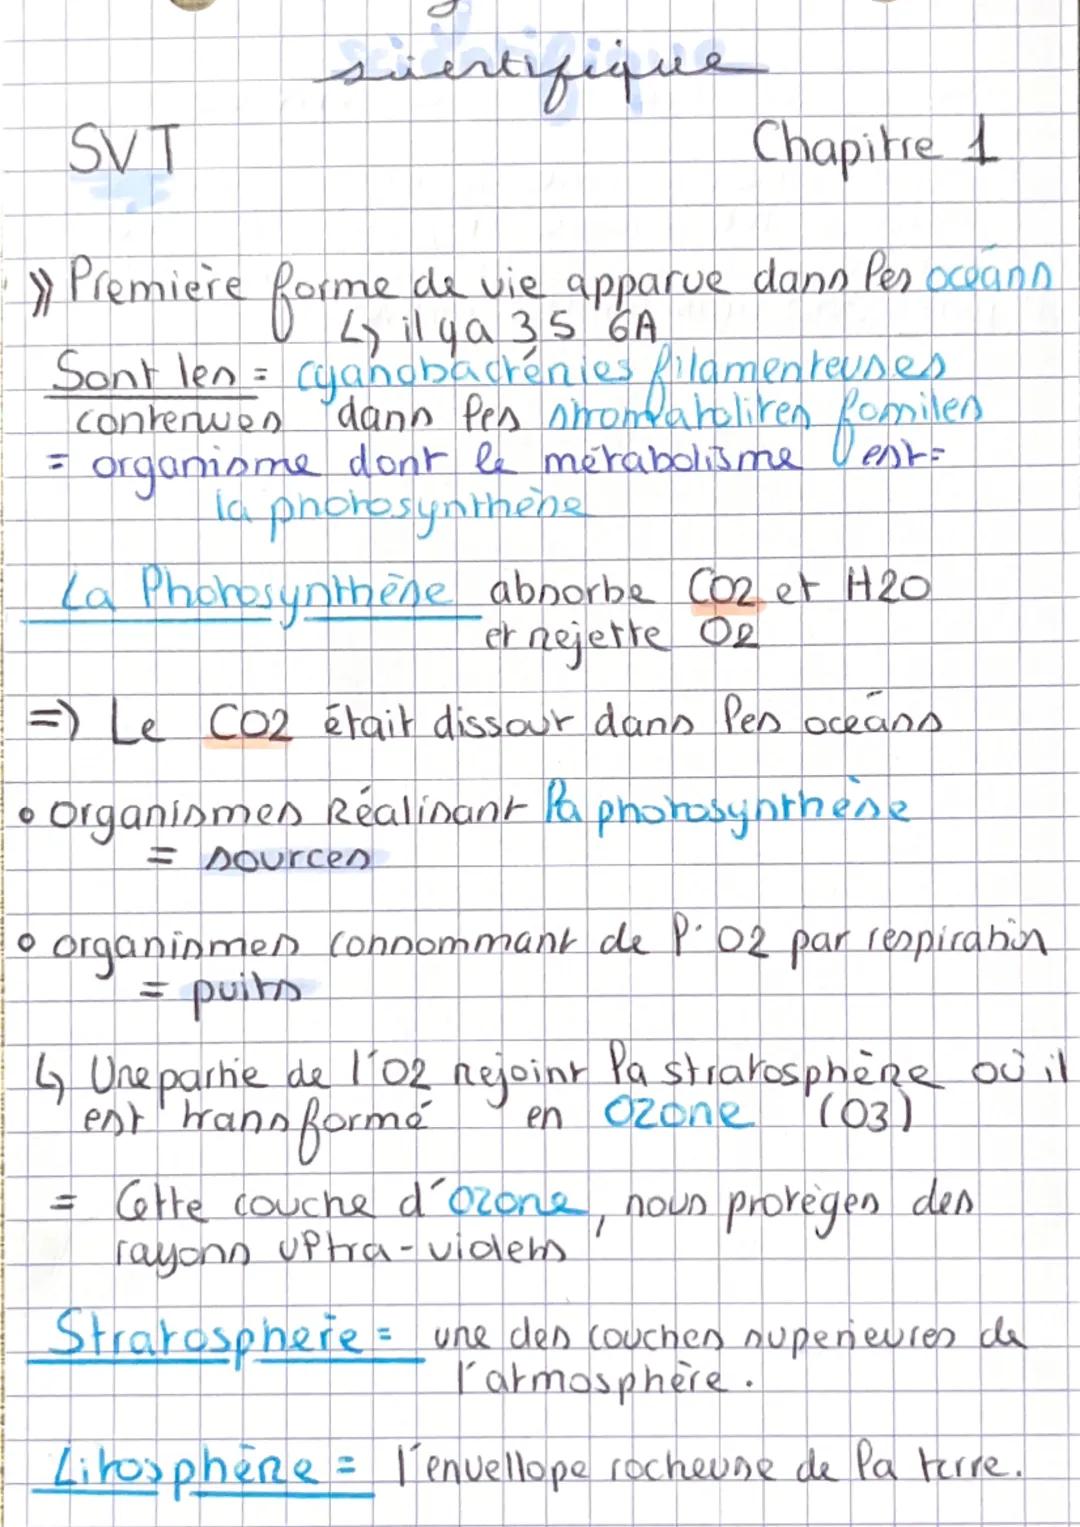 scientifique
SVT Chapitre 1
» Première forme de vie apparue dans les océans
↳ il y a 3,5 GA
Sont les = cyanobactéries filamenteuses
contenues dans les stromatolites fossiles
= organisme dont le métabolisme est =
la photosynthèse
La Photosynthèse absorbe CO2 et H2O
et rejette O2
=> Le CO2 était dissout dans les océans
• organismes Réalisant la photosynthèse
= sources
• organismes consommant de l'O2 par respiration
= puits
↳ Une partie de l'O2 rejoint la stratosphère où il
est transformé en ozone (O3)
= Cette couche d'ozone, nous protèges des
rayons ultra-violets
Stratosphere = une des couches superieures de
l'atmosphère.
Litosphère = l'envellope rocheuse de la terre.